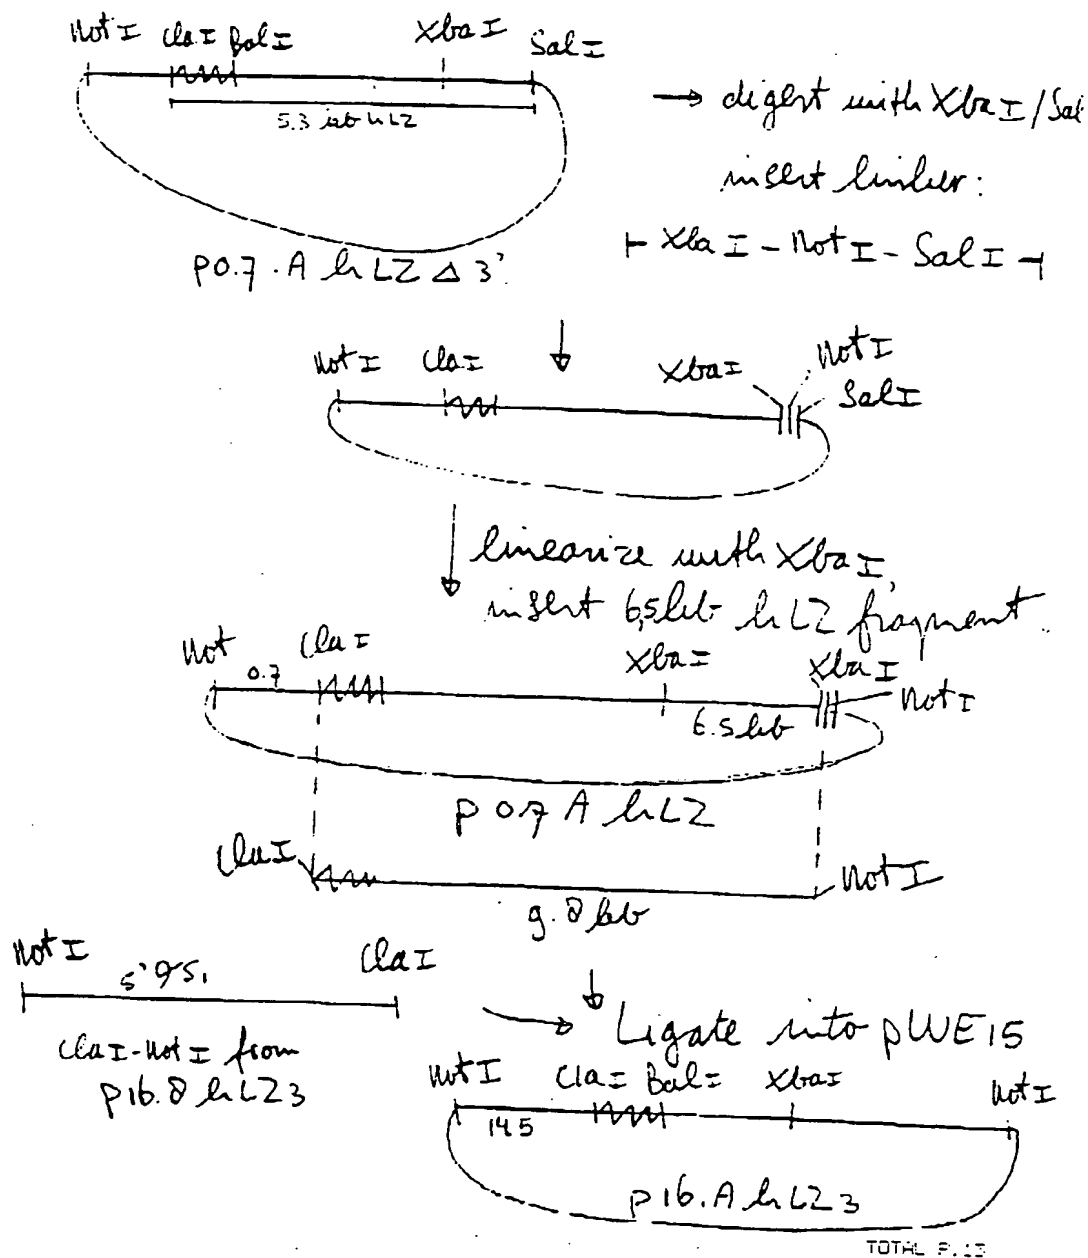 Not I ClaI BalI XbaI SalI
5.3 kb hLZ
→ digest with XbaI/Sal
insert linker:
⊢ XbaI - NotI - SalI ⊣
p0.7.A hLZ Δ 3'
NotI ClaI XbaI NotI
SalI
linearize with XbaI,
insert 6,5kb hLZ fragment.
Not ClaI XbaI XbaI
0.7 NotI
6.5 kb
p 0.7 A hLZ
ClaI NotI
9.8 kb
Not I ClaI
ClaI-NotI from
p16.8 hLZ3
Ligate into pWE15
NotI ClaI BalI XbaI NotI
14.5
p16.A hLZ3
TOTAL P.13